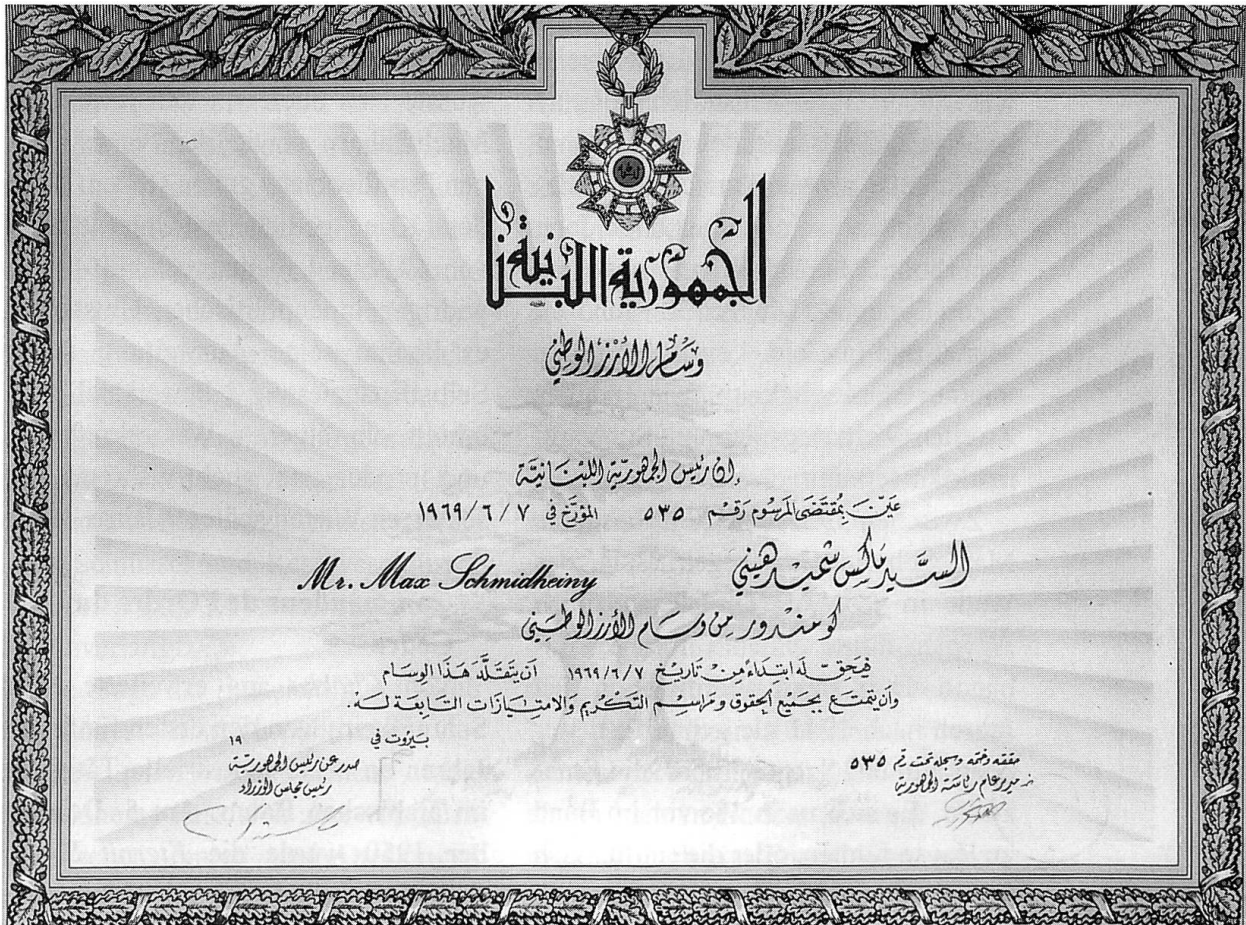 الجمهورية اللبنانية
وسام الأرز الوطني
إن رئيس الجمهورية اللبنانية
عيّن بمقتضى المرسوم رقم ٥٣٥ المؤرّخ في ٧ / ٦ / ١٩٦٩
السيد ماكس شميد هيني Mr. Max Schmidheiny
كومندور من وسام الأرز الوطني
فيحق له ابتداءً من تاريخ ٧ / ٦ / ١٩٦٩ أن يتقلّد هذا الوسام
وأن يتمتع بجميع الحقوق ومراسم التكريم والامتيازات التابعة له.
بيروت في ١٩
صدر عن رئيس الجمهورية
رئيس مجلس الوزراء
حققه وختمه وسجله تحت رقم ٥٣٥
مدير عام رئاسة الجمهورية